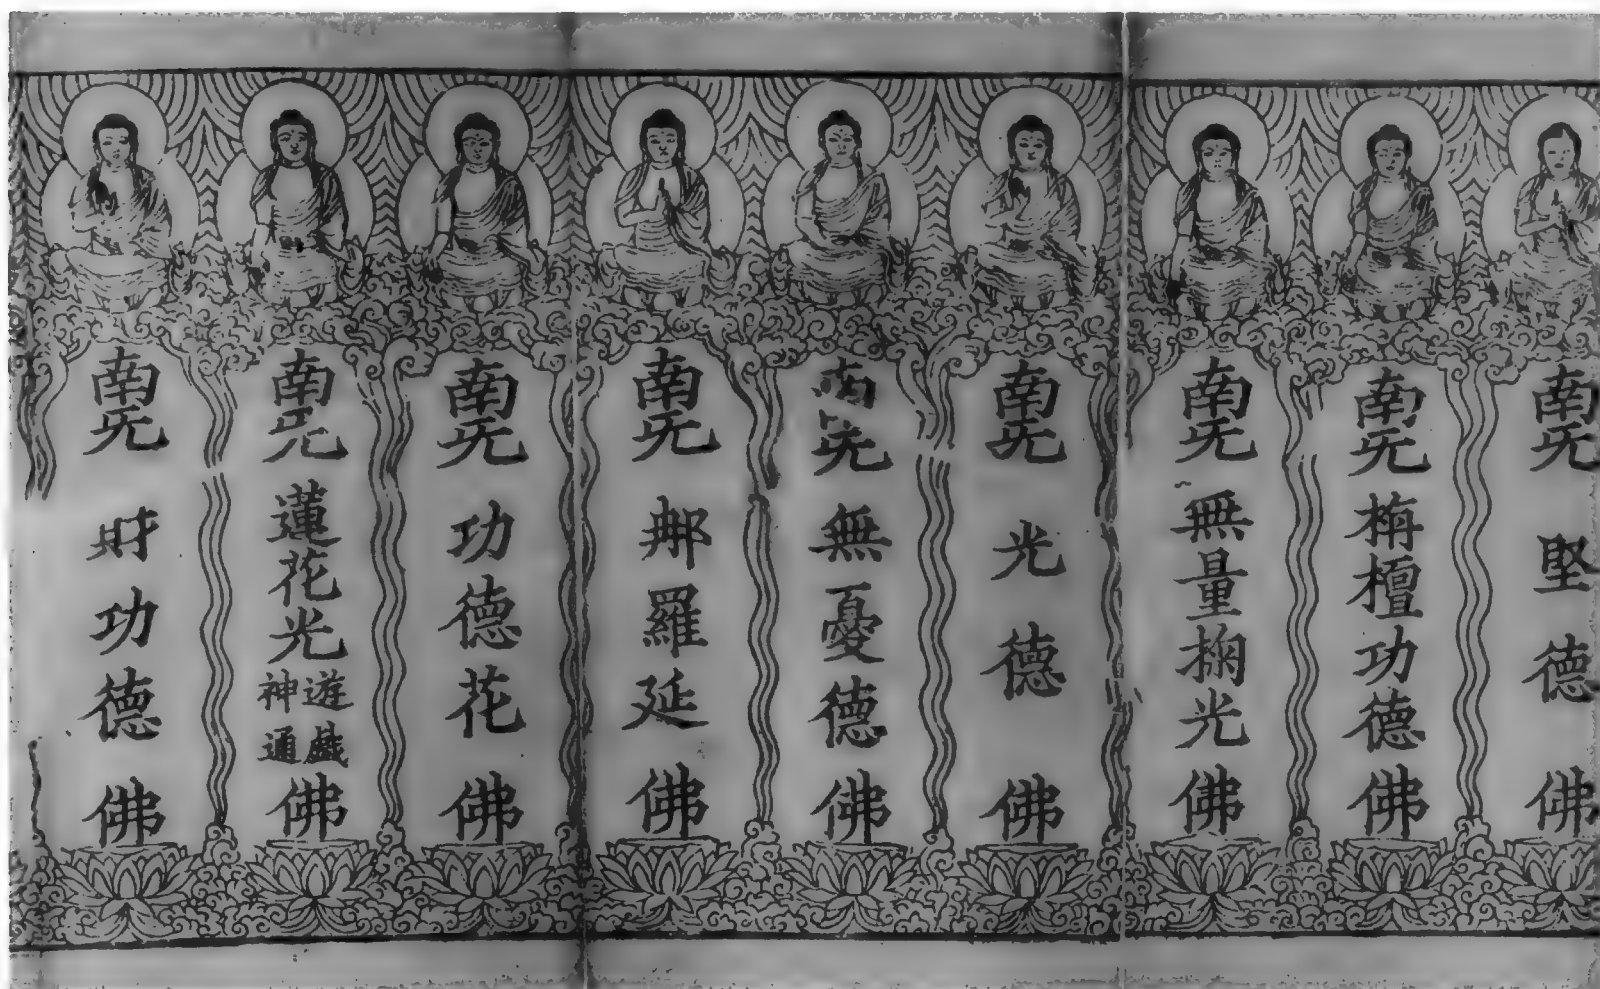 南无堅德佛
南无栴檀功德佛
南无無量掬光佛
南无光德佛
南无無憂德佛
南无那羅延佛
南无功德花佛
南无蓮花光遊戲神通佛
南无財功德佛